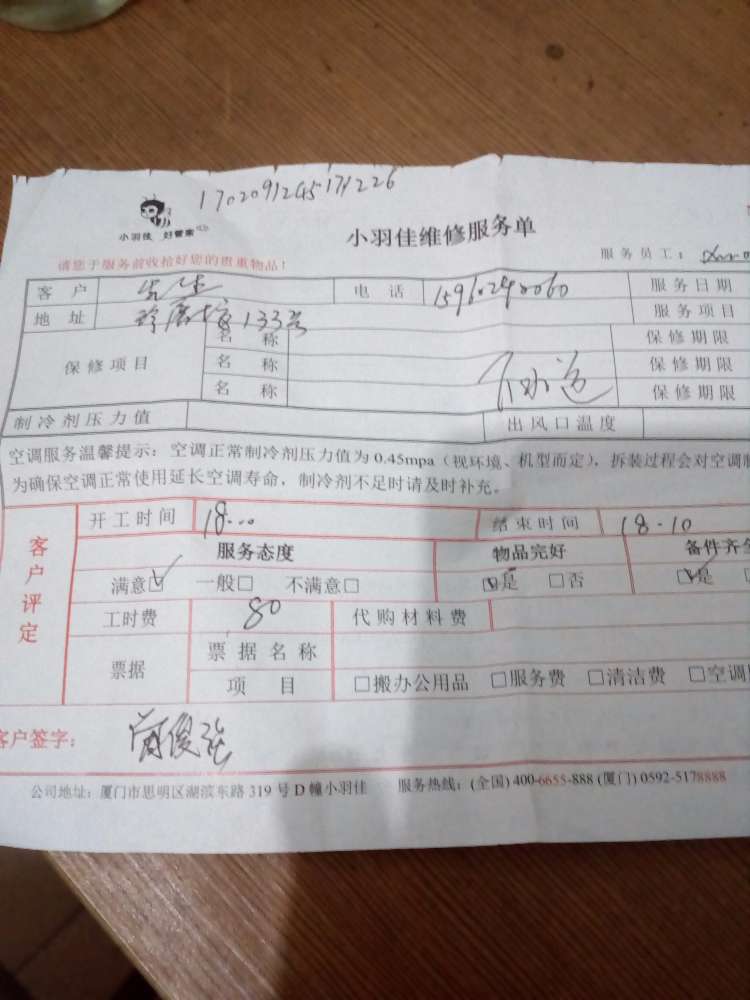 1702091245171226
小羽佳 好管家
小羽佳维修服务单
请您于服务前收拾好您的贵重物品！
服务员工：
客户 先生 电话 服务日期
地址 133号 服务项目
保修项目 名称 保修期限
名称 下水道 保修期限
名称 保修期限
制冷剂压力值 出风口温度
空调服务温馨提示：空调正常制冷剂压力值为0.45mpa（视环境、机型而定），拆装过程会对空调制
为确保空调正常使用延长空调寿命，制冷剂不足时请及时补充。
客户评定
开工时间 18 结束时间 18·10
服务态度 物品完好 备件齐全
满意☑ 一般□ 不满意□ ☑是 □否 ☑是
工时费 80 代购材料费
票据 票据名称
项目 □搬办公用品 □服务费 □清洁费 □空调
客户签字：
公司地址：厦门市思明区湖滨东路319号D幢小羽佳 服务热线：(全国) 400-6655-888 (厦门) 0592-5178888